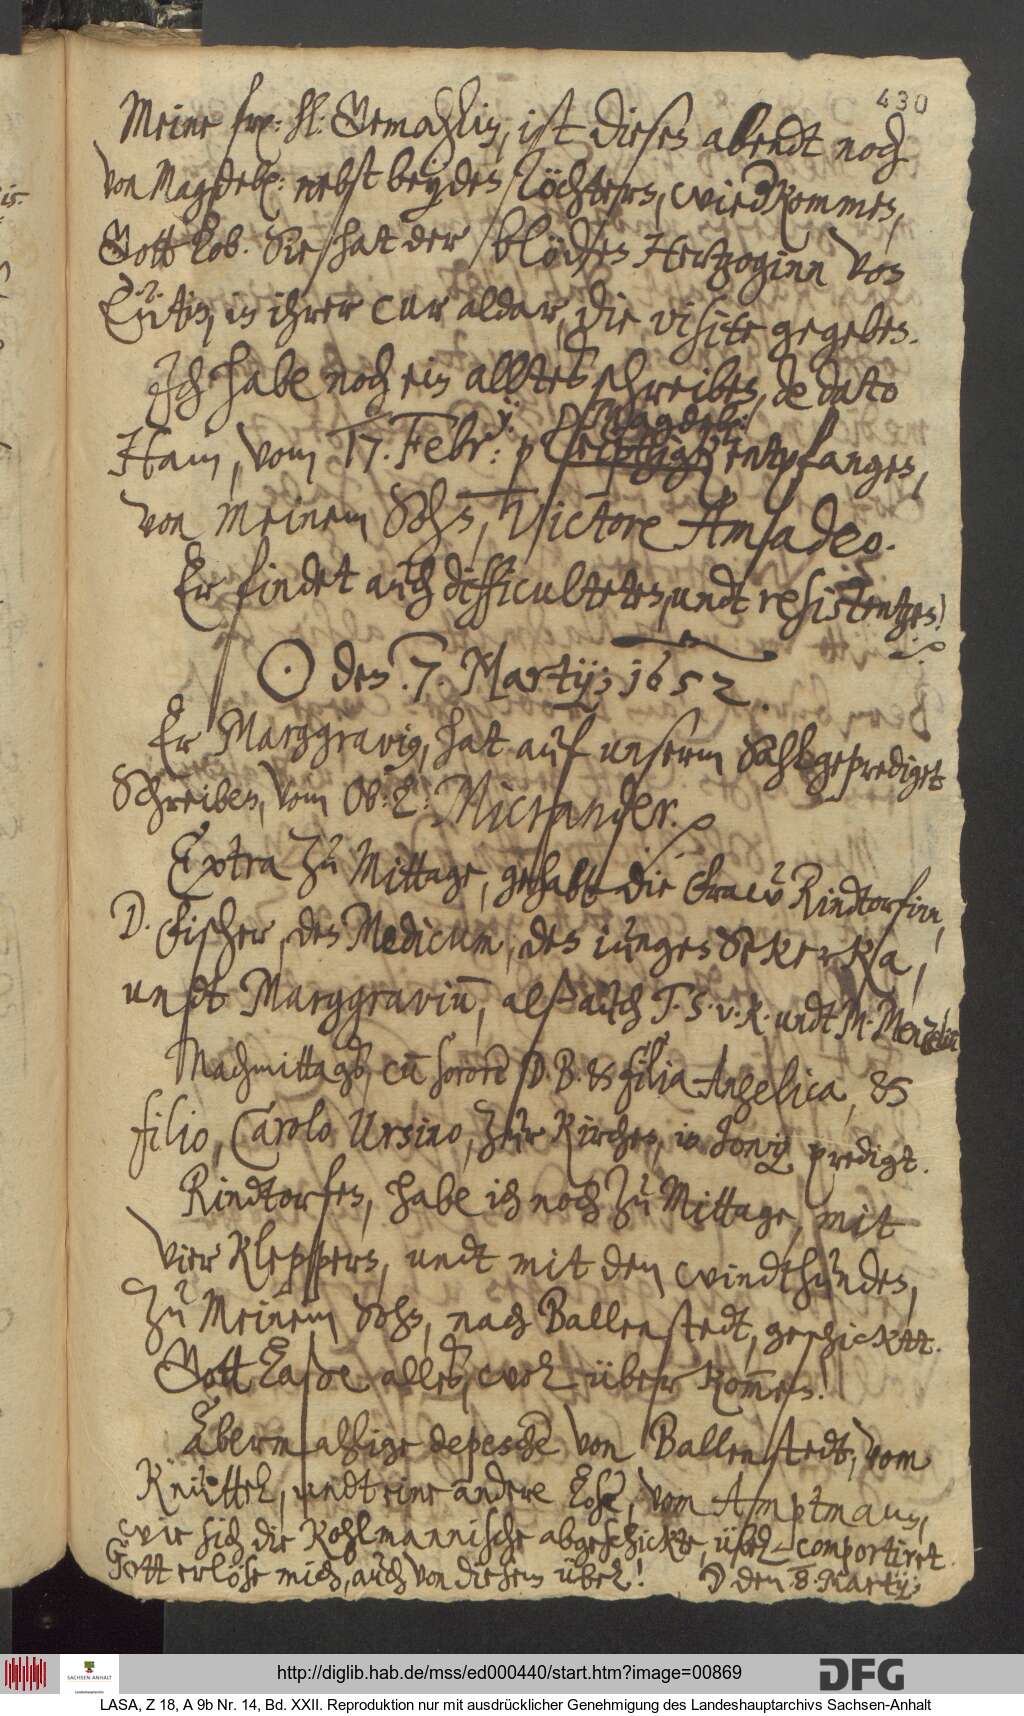 430
Meine fr: hl: Gemahlin, ist dieses abendt noch
von Magdeb: nebst beyden Töchtern, wied kommen,
Gott lob. Sie hat der blöden Hertzoginn von
Eütin, in ihrer cur aldar, die visite gegeben.
Ich habe noch ein alltes schreiben, de dato
Ham, vom 17. Febr: p Magdeb: entpfangen,
von meinem Sohn, Victore Amadeo.
Er findet auch difficulteten, undt resistentzen!
☉ den 7. Martij; 1652.
Er Marggravig, hat auf unserm Sahl geprediget
Schreiben, vom Ob: L: Micrander.
Extra zu Mittage, gehabtt die Fraw Rindtorfinn,
D. Fischer, den Medicum, den iungen Sekerka,
undt Marggraviū, alß auch T. S. v. R. undt M. Menzelium
Nachmittags, cū sorore D. B. et filia Angelica, et
filio, Carolo Ursino, zur Kirchen, in Jonij predigt.
Rindtorfen, habe ich noch zu Mittage, mit
vier Kleppern, undt mit den windthunden,
zu Meinem Sohn, nach Ballenstedt, geschicktt.
Gott laße alles, wol über kom̄en!
Abermalige depesche von Ballenstedt, vom
Knüttel, undt eine andere lose, vom Amptmann,
wie sich die Kohlmannische abgeschickte, übel comportiret.
Gott erlöse mich, auch von diesem übel! ☽ den 8. Martij;
http://diglib.hab.de/mss/ed000440/start.htm?image=00869
SACHSEN-ANHALT
DFG
LASA, Z 18, A 9b Nr. 14, Bd. XXII. Reproduktion nur mit ausdrücklicher Genehmigung des Landeshauptarchivs Sachsen-Anhalt